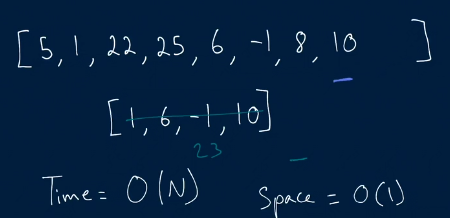 [5, 1, 22, 25, 6, -1, 8, 10 ]
[1, 6, -1, 10]
23
Time = O(N) Space = O(1)